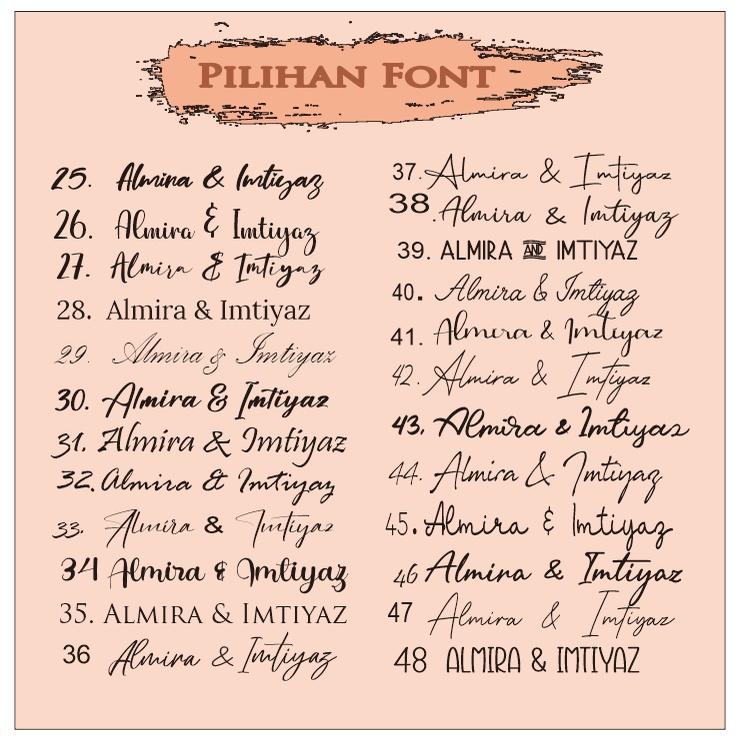 PILIHAN FONT
25. Almira & Imtiyaz
26. Almira & Imtiyaz
27. Almira & Imtiyaz
28. Almira & Imtiyaz
29. Almira & Imtiyaz
30. Almira & Imtiyaz
31. Almira & Imtiyaz
32. Almira & Imtiyaz
33. Almira & Imtiyaz
34 Almira & Imtiyaz
35. ALMIRA & IMTIYAZ
36 Almira & Imtiyaz
37. Almira & Imtiyaz
38. Almira & Imtiyaz
39. ALMIRA AND IMTIYAZ
40. Almira & Imtiyaz
41. Almira & Imtiyaz
42. Almira & Imtiyaz
43. Almira & Imtiyaz
44. Almira & Imtiyaz
45. Almira & Imtiyaz
46 Almira & Imtiyaz
47 Almira & Imtiyaz
48 ALMIRA & IMTIYAZ